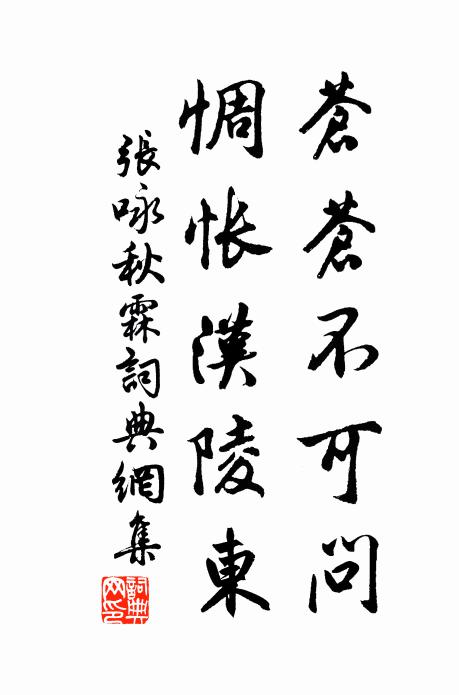 蒼蒼不可問
悵悵漢陵東
張咏秋霖詞典網集
詞典网印